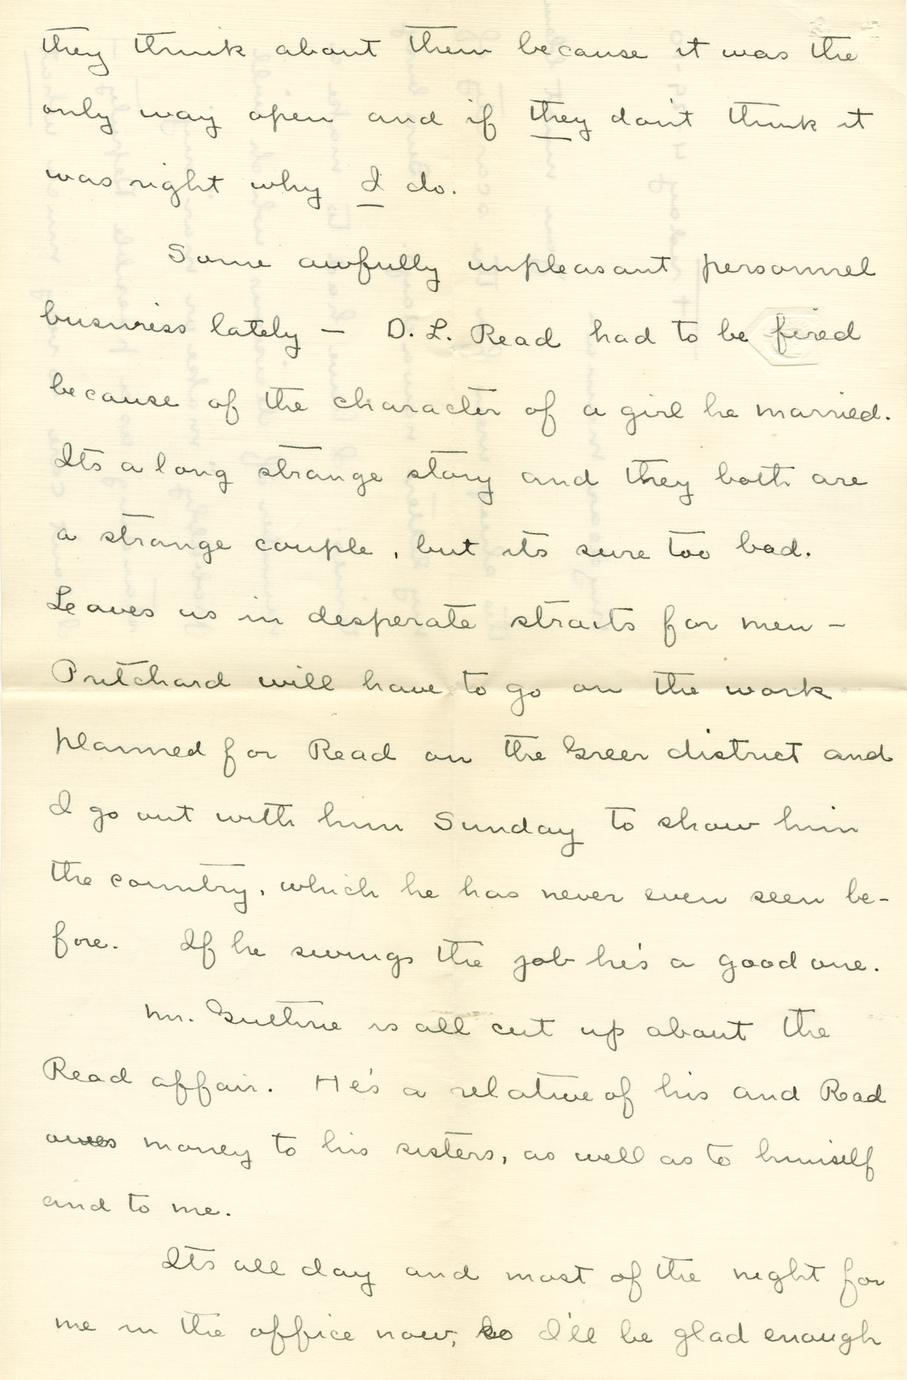 they think about them because it was the
only way open and if they don't think it
was right why I do.
Some awfully unpleasant personnel
business lately - D. L. Read had to be fired
because of the character of a girl he married.
Its a long strange story and they both are
a strange couple, but its sure too bad.
Leaves us in desperate straits for men -
Pritchard will have to go on the work
planned for Read on the Greer district and
I go out with him Sunday to show him
the country, which he has never even seen be-
fore. If he swings the job he's a good one.
Mr. Guthrie is all cut up about the
Read affair. He's a relative of his and Read
owes money to his sisters, as well as to himself
and to me.
Its all day and most of the night for
me in the office now, so I'll be glad enough